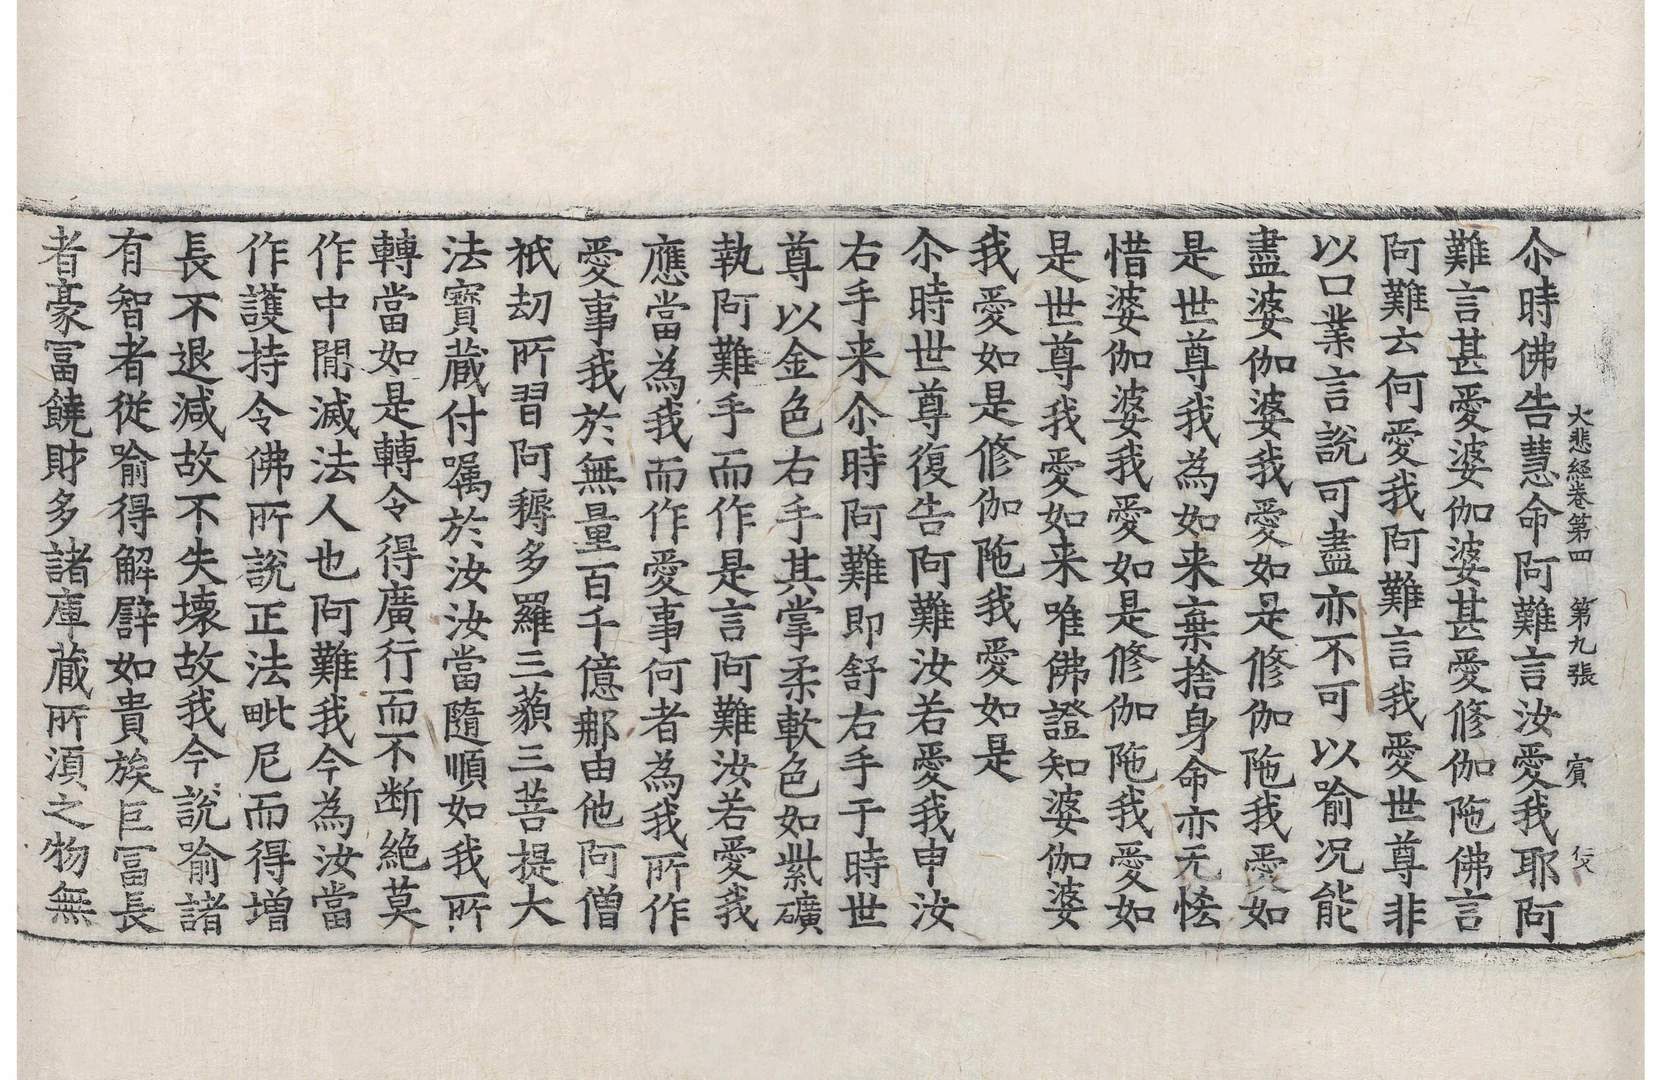 大悲經卷第四 第九張 賓
尒時佛告慧命阿難言汝愛我耶阿
難言甚愛婆伽婆甚愛修伽陁佛言
阿難云何愛我阿難言我愛世尊非
以口業言說可盡亦不可以喻况能
盡婆伽婆我愛如是修伽陁我愛如
是世尊我為如来棄捨身命亦无恡
惜婆伽婆我愛如是修伽陁我愛如
是世尊我愛如来唯佛證知婆伽婆
我愛如是修伽陁我愛如是
尒時世尊復告阿難汝若愛我申汝
右手来尒時阿難即舒右手于時世
尊以金色右手其掌柔軟色如紫礦
執阿難手而作是言阿難汝若愛我
應當為我而作愛事何者為我所作
愛事我於無量百千億那由他阿僧
祇劫所習阿耨多羅三藐三菩提大
法寶藏付嘱於汝汝當隨順如我所
轉當如是轉令得廣行而不断絶莫
作中閒滅法人也阿難我今為汝當
作護持令佛所說正法毗尼而得增
長不退減故不失壞故我今說喻諸
有智者從喻得解譬如貴族巨冨長
者豪冨饒財多諸庫藏所湏之物無